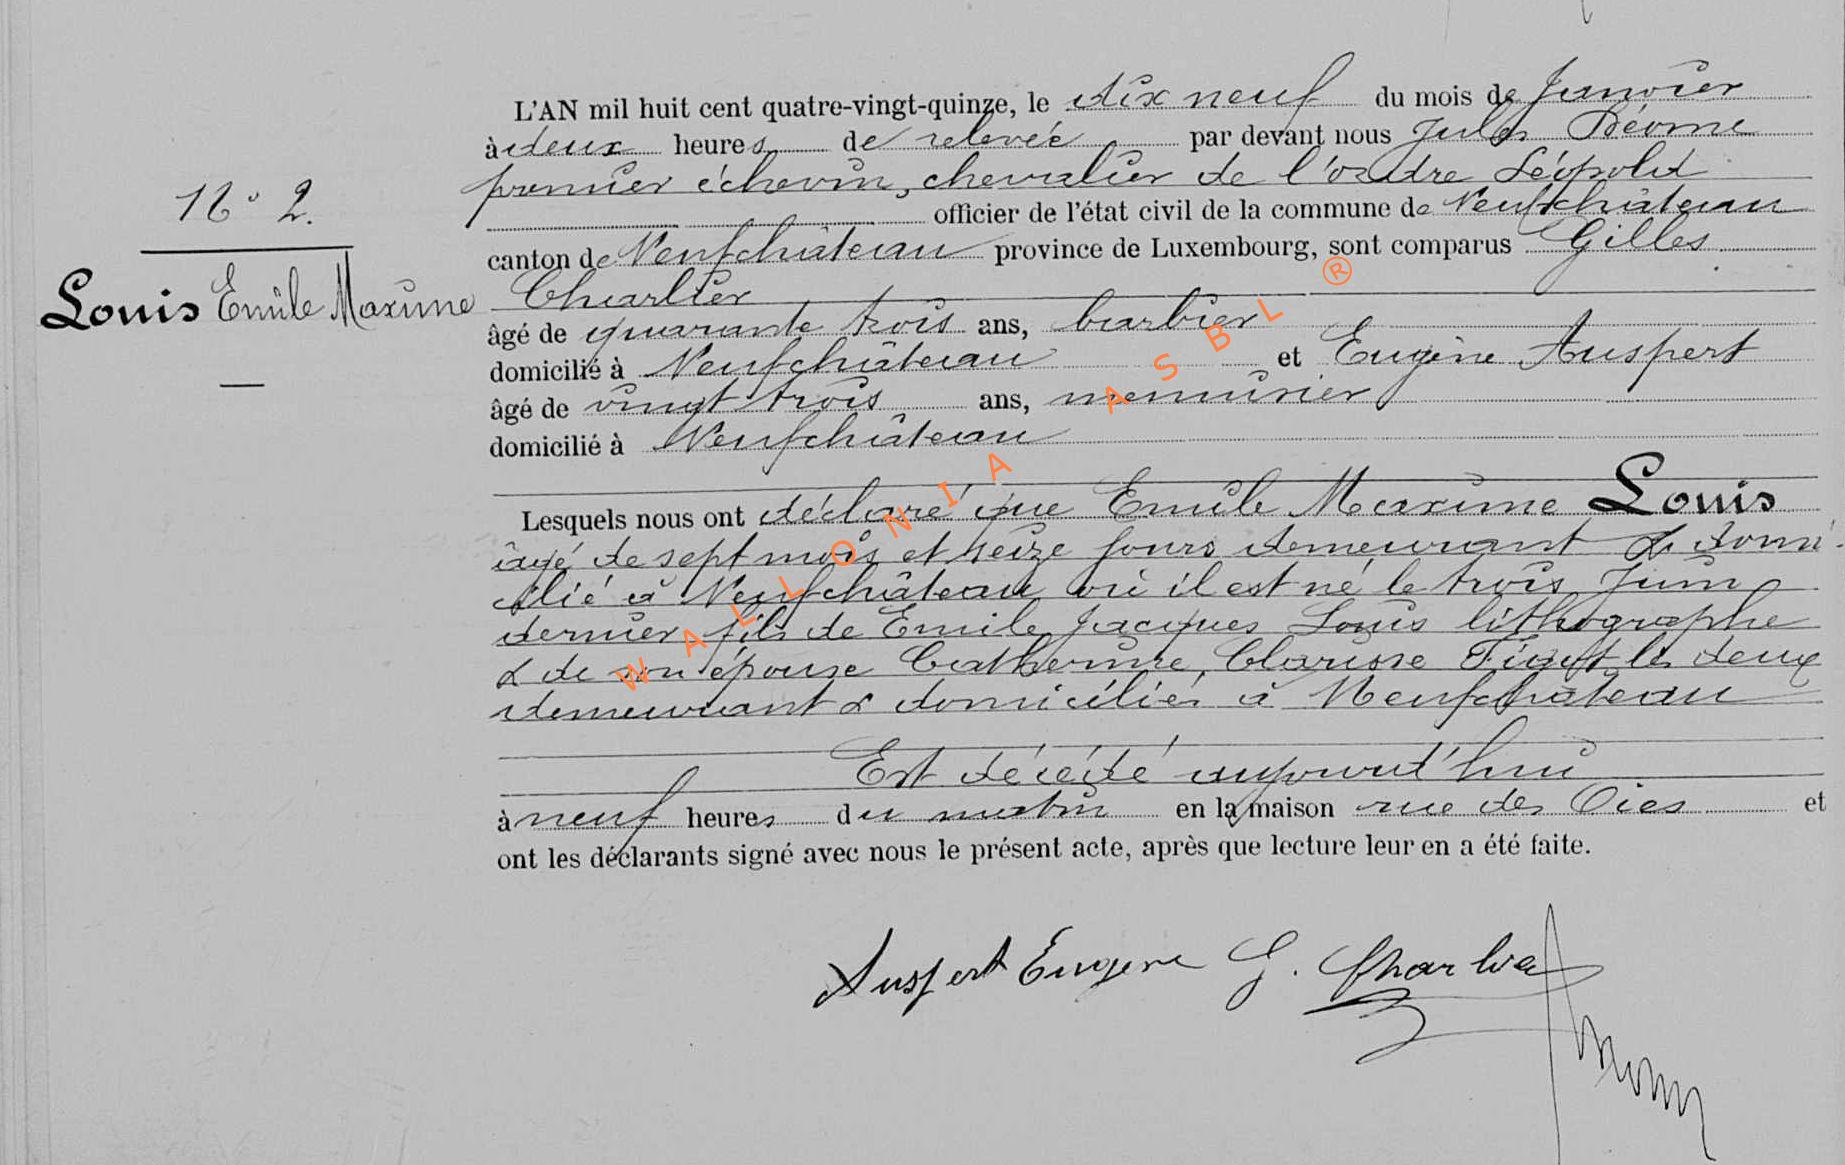 L'AN mil huit cent quatre-vingt-quinze, le dix neuf du mois de Janvier
à deux heures de relevée par devant nous Jules
premier échevin, chevalier de l'ordre Léopold
officier de l'état civil de la commune de Neufchâteau
canton de Neufchâteau province de Luxembourg, sont comparus Gilles
Charlier
âgé de quarante trois ans, barbier
domicilié à Neufchâteau et Eugène Auspert
âgé de vingt trois ans, menuisier
domicilié à Neufchâteau
Lesquels nous ont déclaré que Emile Maxime Louis
âgé de sept mois et seize jours demeurant & domi-
cilié à Neufchâteau où il est né le trois Juin
dernier fils de Emile Jacques Louis lithographe
& de son épouse Catherine Clarisse les deux
demeurant & domiciliés à Neufchâteau
Est décédé aujourd'hui
à neuf heures du matin en la maison rue des Oies et
ont les déclarants signé avec nous le présent acte, après que lecture leur en a été faite.
N° 2.
Louis Emile Maxime
Auspert Eugène G. Charlier
WALLONIA ASBL ®